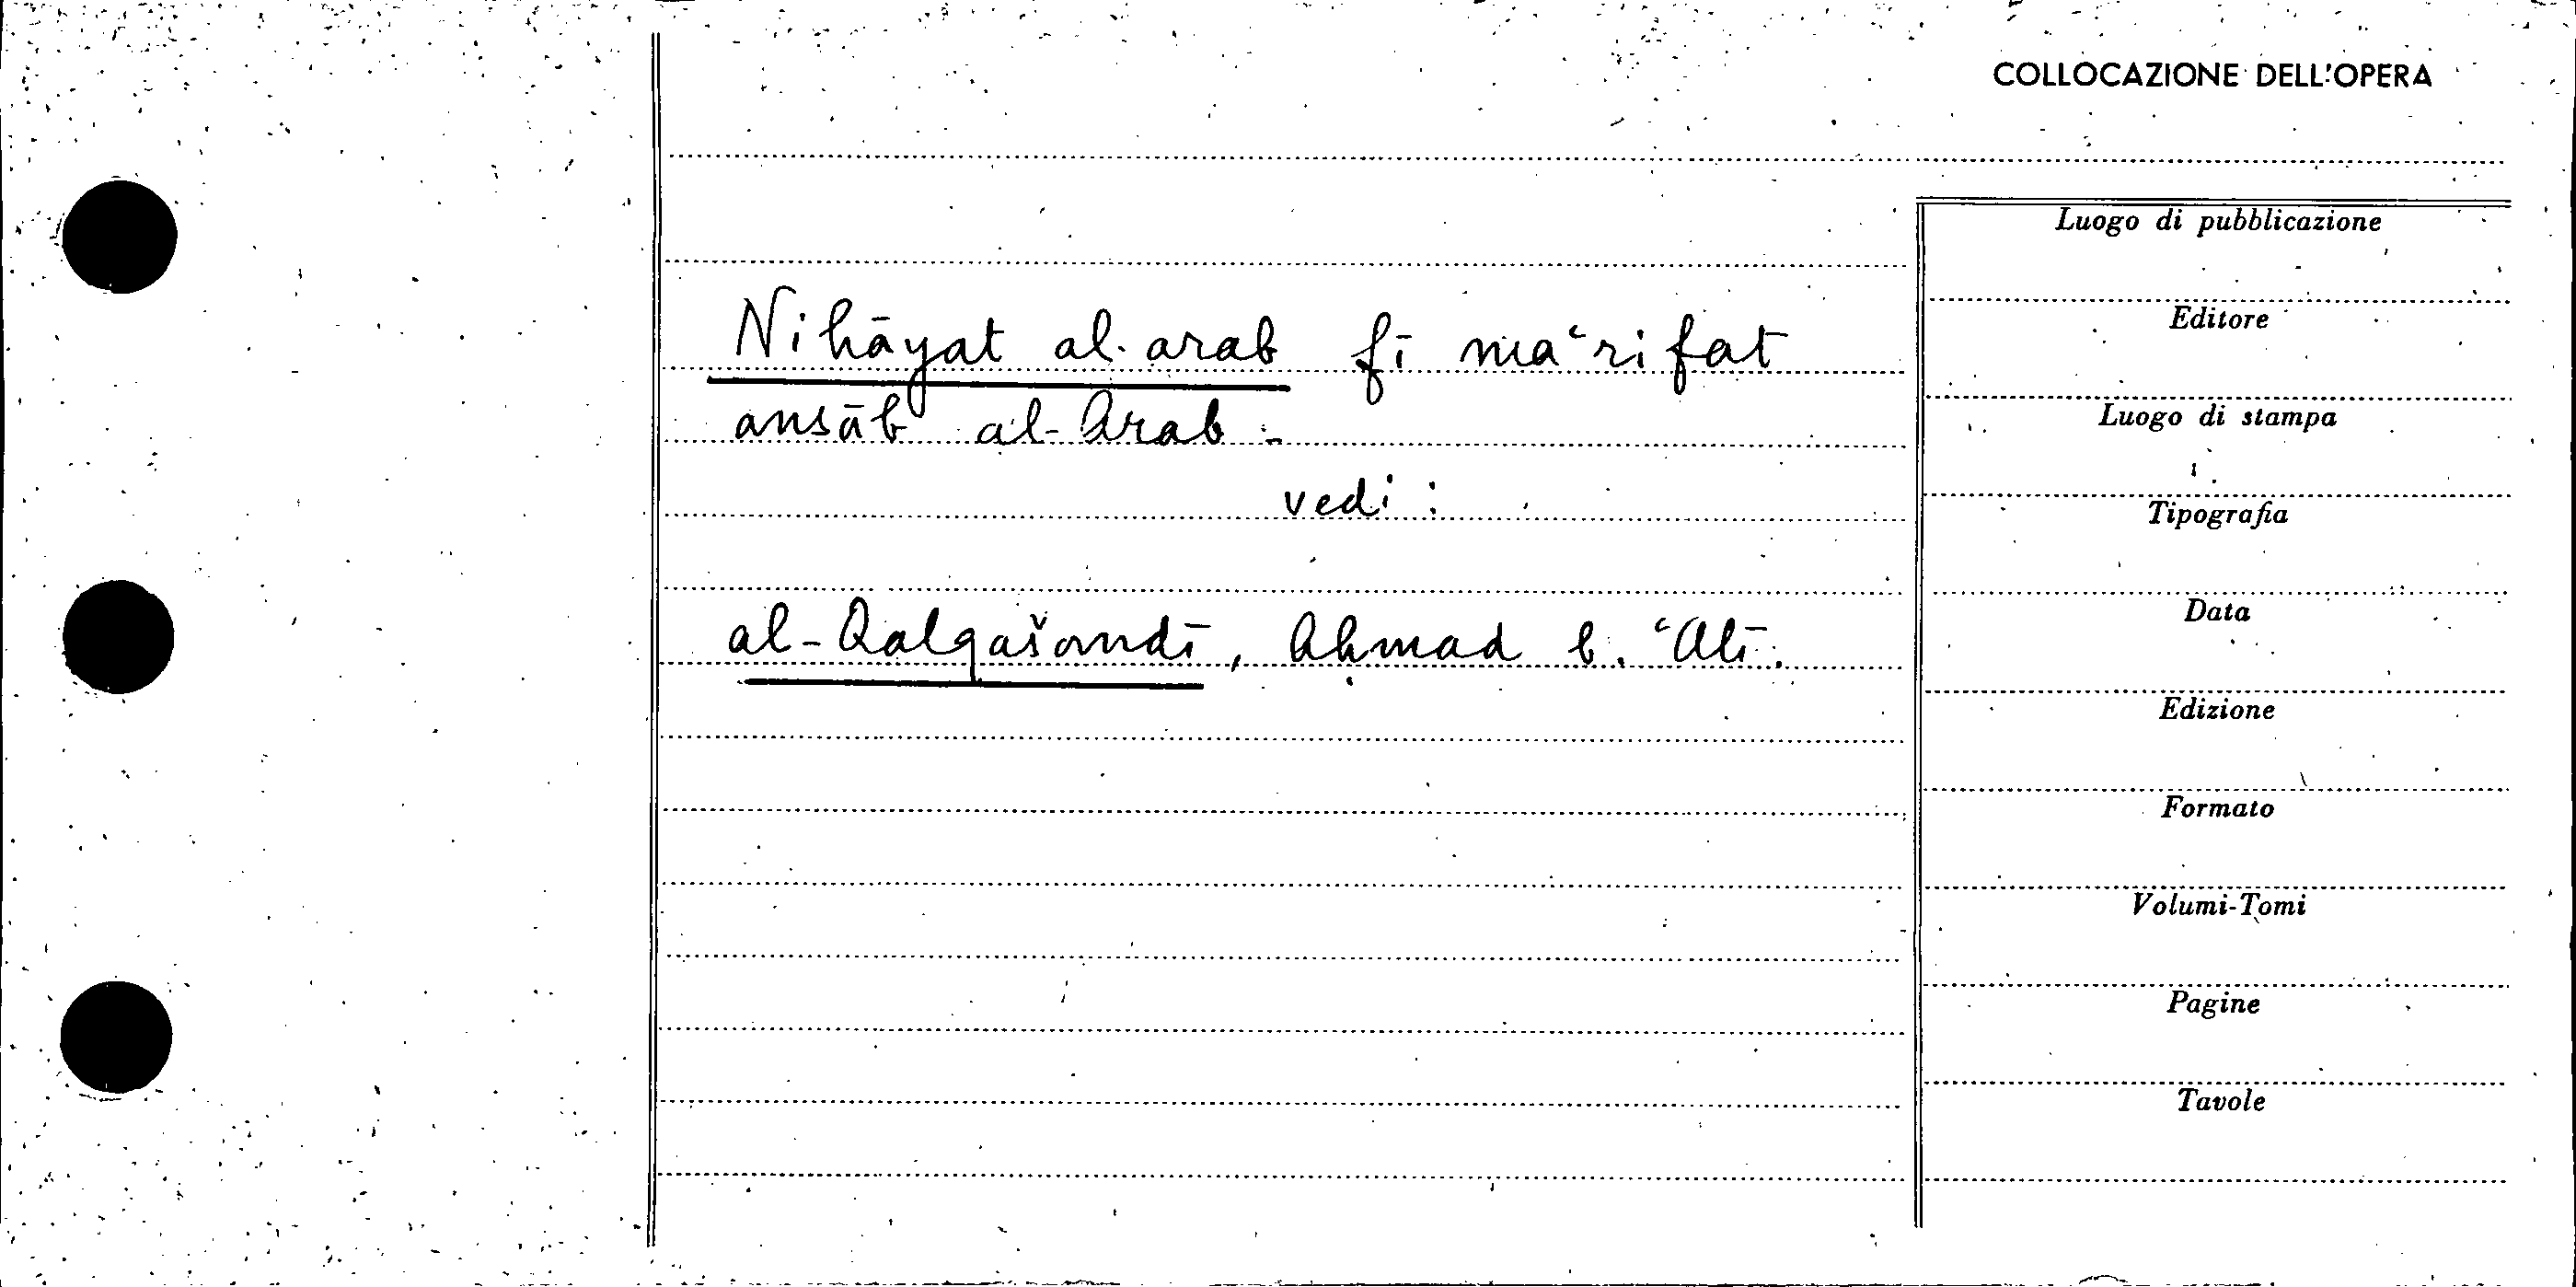 COLLOCAZIONE DELL'OPERA
Nihāyat al-arab fī maʿrifat
ansāb al-Arab -
vedi :
al-Qalqašandī, Aḥmad b. ʿAlī.
Luogo di pubblicazione
Editore
Luogo di stampa
Tipografia
Data
Edizione
Formato
Volumi-Tomi
Pagine
Tavole